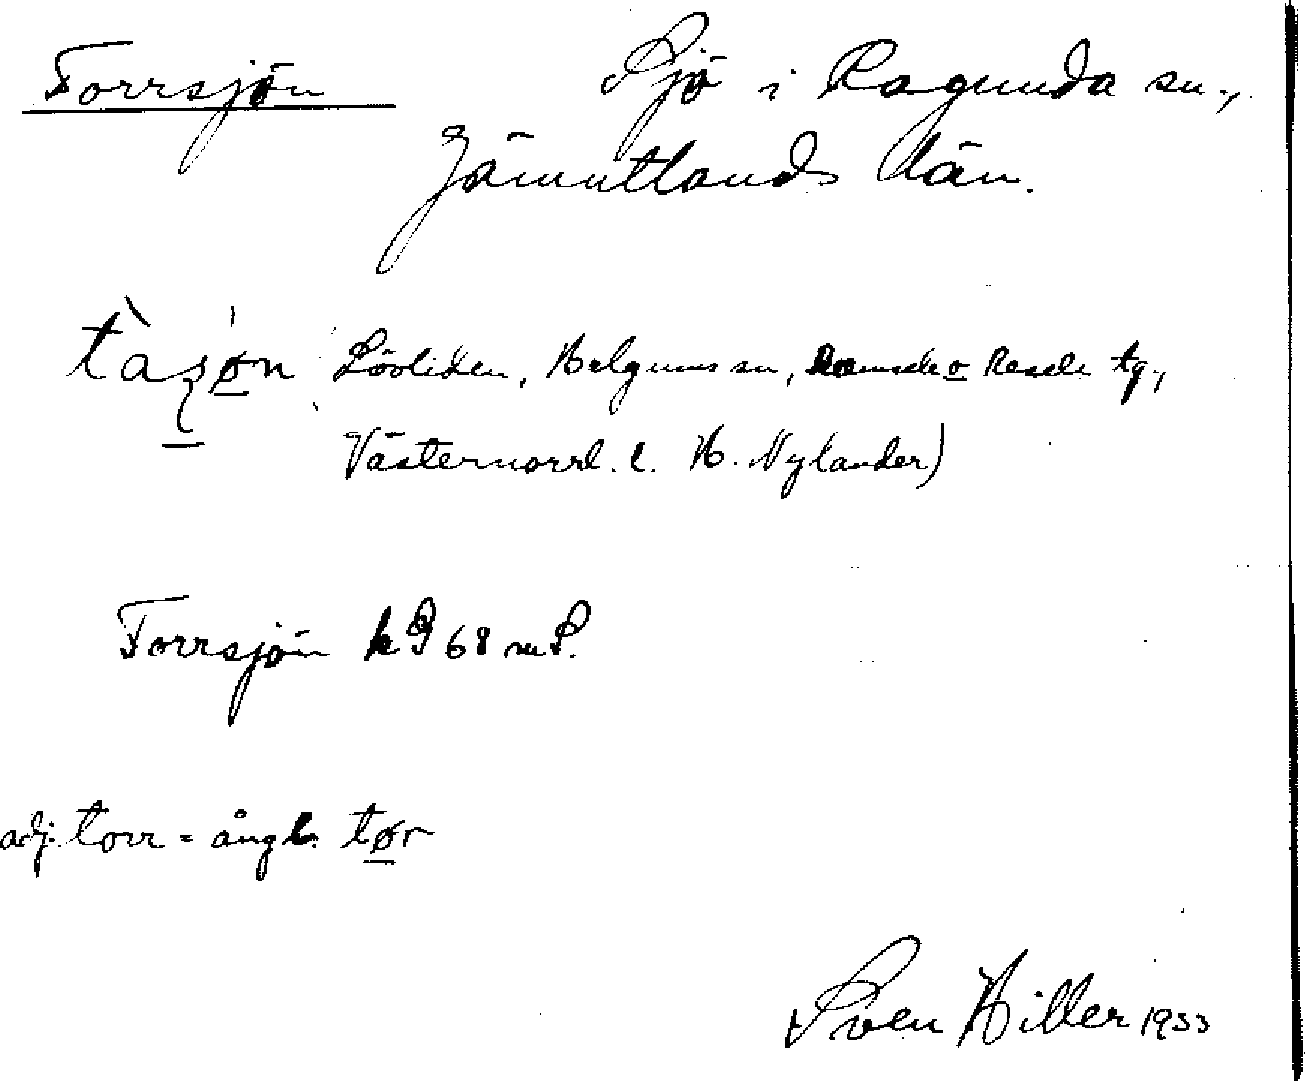 Torrsjön Sjö i Ragunda sn.,
Jämtlands län.
Lövliden, Helgums sn, Ramsele o Resele tg,
Västernorrl. l. H. Nylander)
Torrsjön k 68
adj. torr = ångl. tør
Sven Hiller 1933